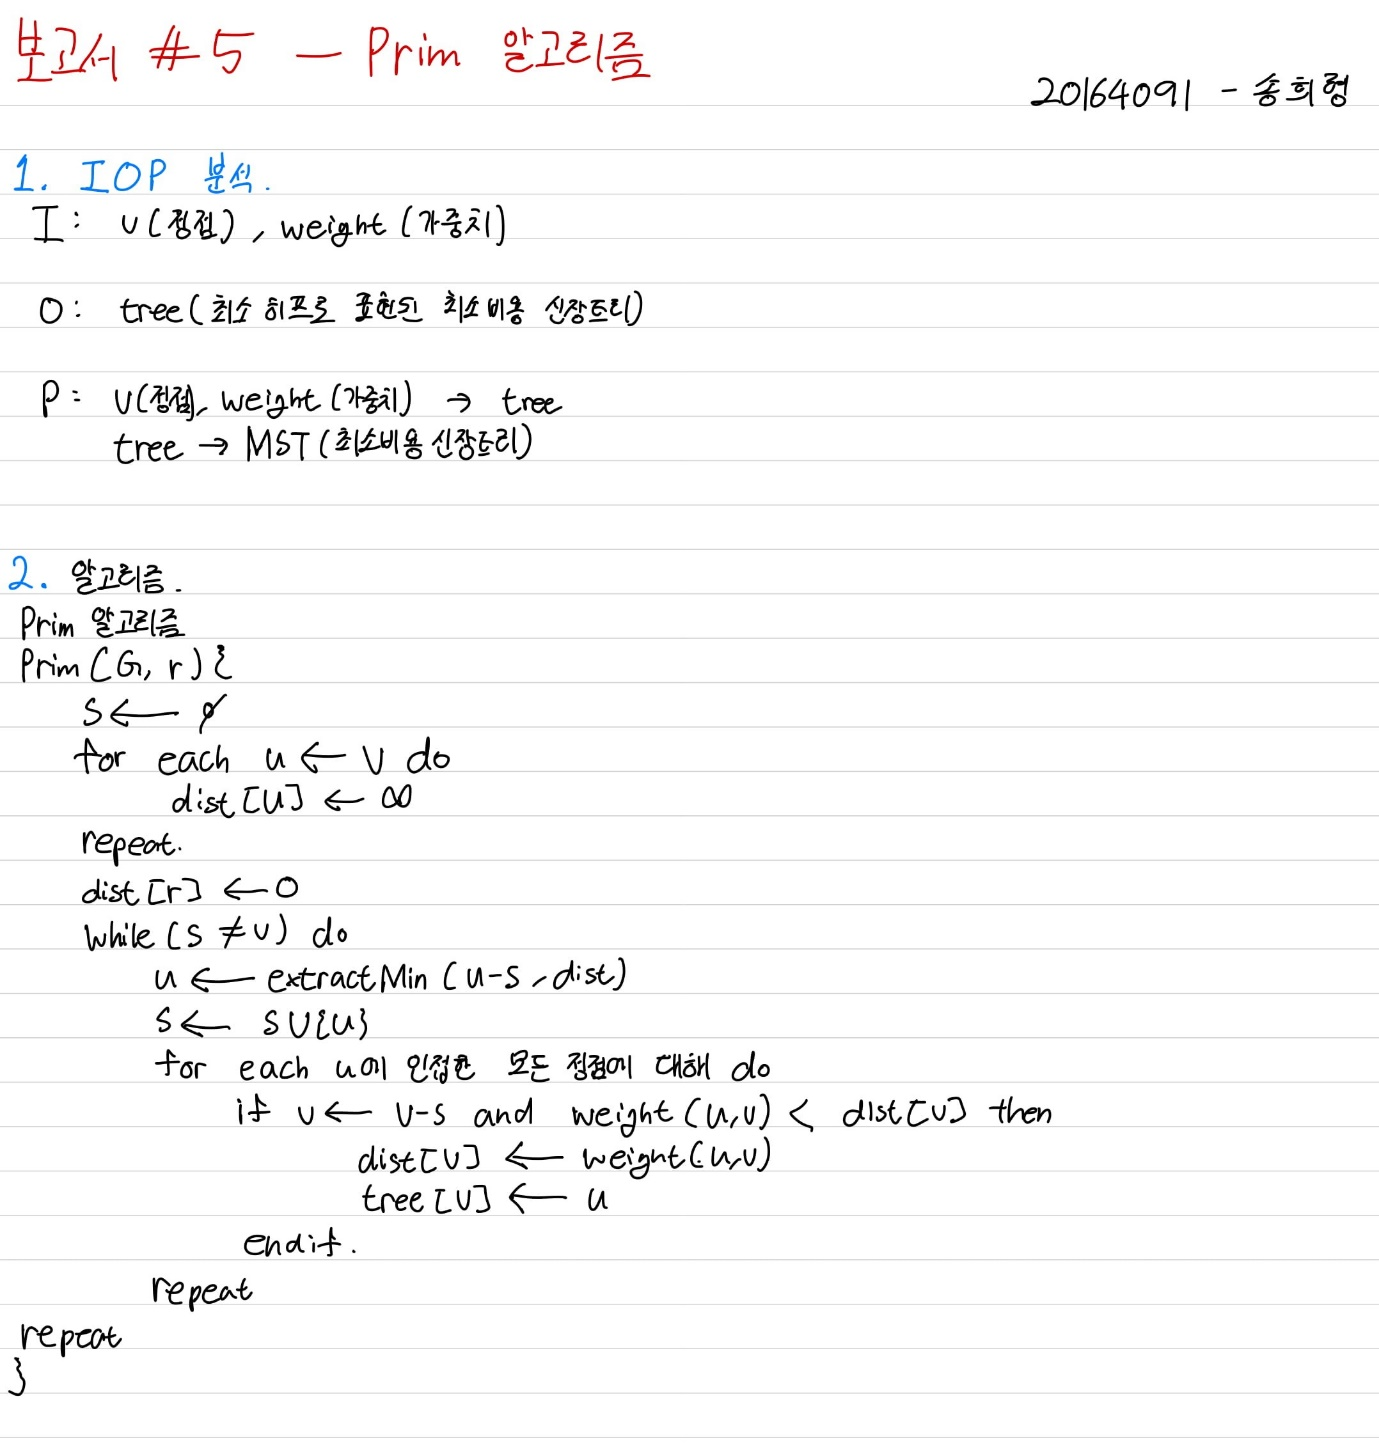 보고서 #5 - Prim 알고리즘
20164091 - 송희령
1. IOP 분석.
I: v(정점), weight (가중치)
O: tree(최소 히프로 표현된 최소비용 신장트리)
P: v(정점), weight (가중치) → tree
tree → MST (최소비용 신장트리)
2. 알고리즘.
Prim 알고리즘
Prim (G, r) {
S ← ∅
for each u ← V do
dist[u] ← ∞
repeat.
dist[r] ← 0
while (S ≠ V) do
u ← extractMin (u-s, dist)
S ← S∪{u}
for each u에 인접한 모든 정점에 대해 do
if v ← V-S and weight (u,v) < dist[v] then
dist[v] ← weight(u,v)
tree[v] ← u
endif.
repeat
repeat
}